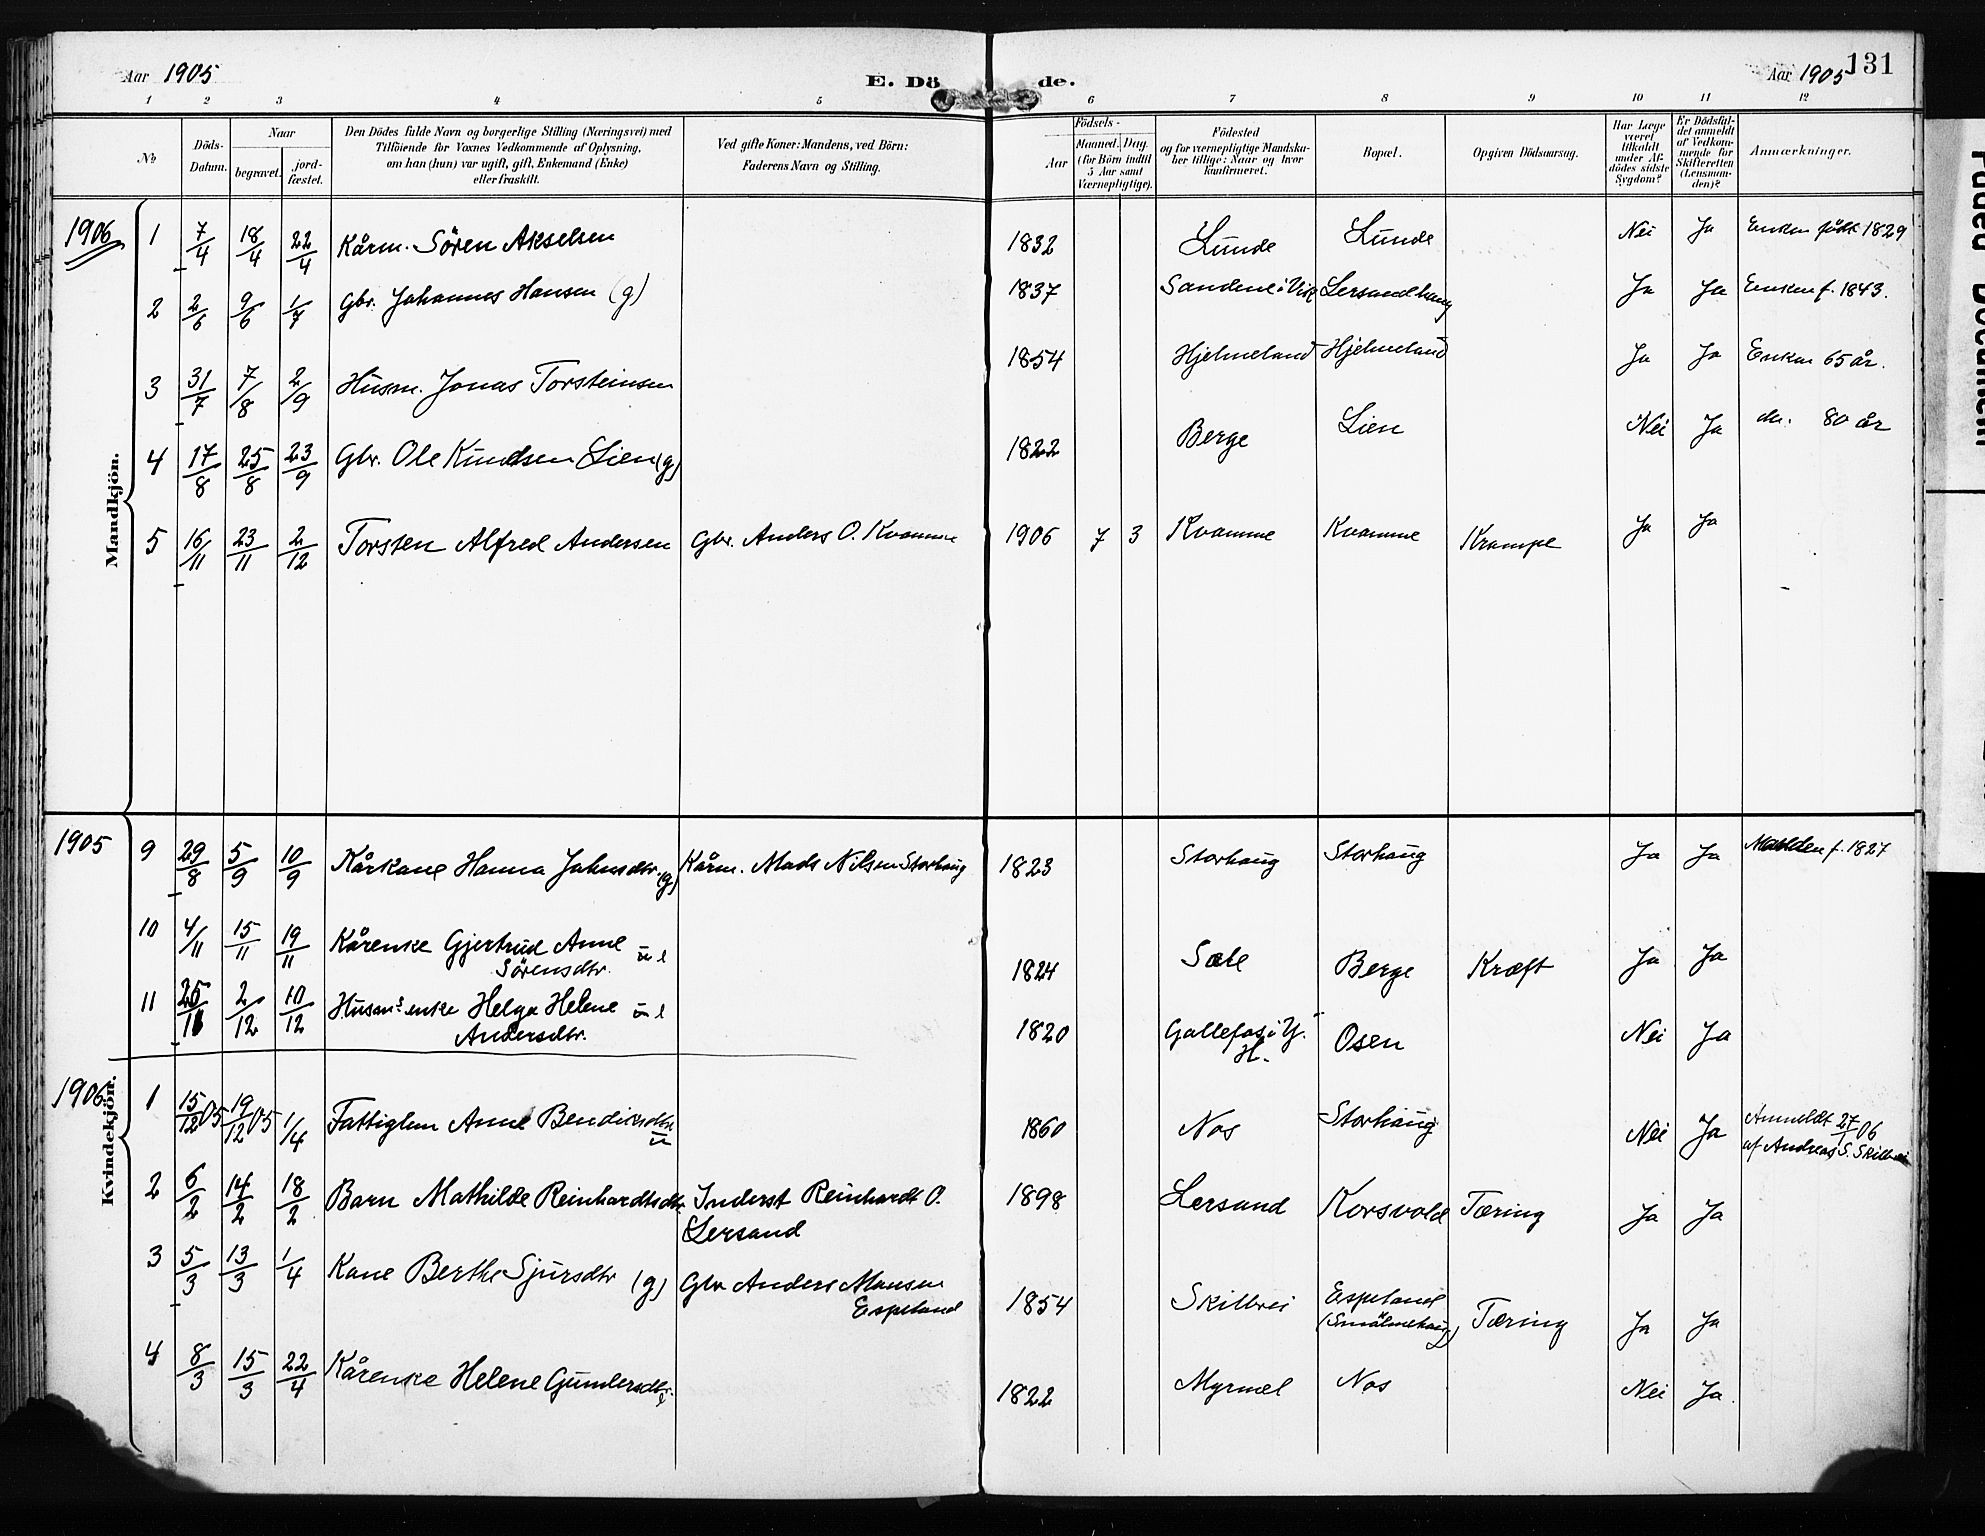 Aar 1905
E. Dö de.
Aar 1905 131
1 2 3 4 5 6 7 8 9 10 11 12
No
Döds-Datum.
Naar
begravet.
jord-fæstet.
Den Dödes fulde Navn og borgerlige Stilling (Næringsvei) med
Tilföiende for Voxnes Vedkommende af Oplysning,
om han (hun) var ugift, gift, Enkemand (Enke)
eller fraskilt.
Ved gifte Koner: Mandens, ved Börn:
Faderens Navn og Stilling.
Födsels-
Aar
Maaned. Dag.
(for Börn indtil
5 Aar samt
Værnepligtige).
Födested
og for værnepligtige Mandska-
ber tillige: Naar og hvor
konfirmeret.
Bopæl.
Opgiven Dödsaarsag.
Har Læge
været
tilkaldt
under Af-
dödes sidste
Sygdom?
Er Dödsfal-
det anmeldt
af Vedkom-
mende for
Skifteretten
(Lensman-
den)?
Anmærkninger.
Mandkjön.
1906 1 7/4 18/4 22/4 Kårm. Sören Akselsen 1832 Lunde Lunde Nei Ja Enken född 1829
2 2/6 9/6 1/7 Gbr. Johannes Hansen (g) 1837 Sandene i Vik Lersandhaug Ja Ja Enken f. 1843.
3 31/7 7/8 2/9 Husm. Jonas Torsteinsen 1854 Hjelmeland Hjelmeland Ja Ja Enken 65 år.
4 17/8 25/8 23/9 Gbr. Ole Knudsen Lien (g) 1822 Berge Lien Nei Ja do. 80 år
5 16/11 23/11 2/12 Torsten Alfred Andersen Gbr. Anders O. Kvamme 1906 7 3 Kvamme Kvamme Krampe Ja Ja
Kvindekjön.
1905 9 29/8 5/9 10/9 Kårkane Hanna Johnsdtr. (g) Kårm. Mads Nilsen Storhaug 1823 Storhaug Storhaug Ja Ja f. 1827
10 4/11 15/11 19/11 Kårenke Gjertrud Anne
Sörensdtr. 1824 Sæle Berge Kræft Ja Ja
11 25/11 2/12 10/12 Husm.s enke Helga Helene
Andersdtr. 1820 Gallefos i Y.
H. Osen Nei Ja
1906 1 15/12 05 19/12 05 1/4 Fattiglem Anne Bendiksdtr. u 1860 Nos Storhaug Nei Ja Anmeldt 27/1 06
af Andreas S. Skilbrei
2 6/2 14/2 18/2 Barn Mathilde Reinhardtsdtr. Inderst Reinhardt O.
Lersand 1898 Lersand Korsvold Tæring Ja Ja
3 5/3 13/3 1/4 Kone Berthe Sjursdtr (g) Gbr Anders Monsen
Espeland 1854 Skilbrei Espeland
Tæring Ja Ja
4 8/3 15/3 22/4 Kårenke Helene Gundersdtr. 1822 Myrmel Nos Nei Ja.